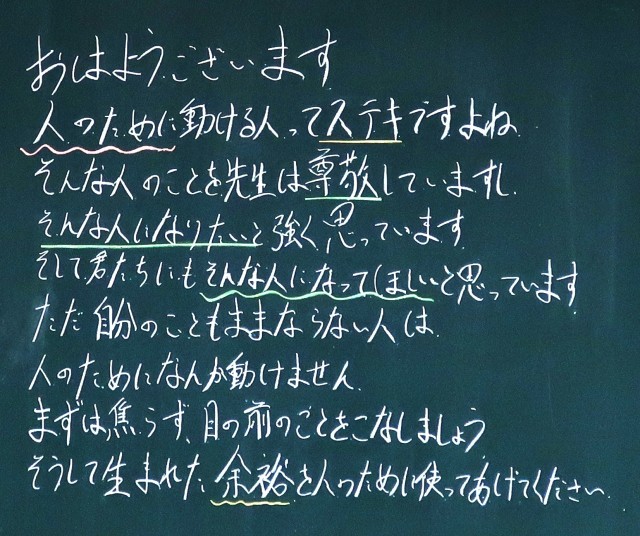 おはようございます
人のために動ける人ってステキですよね
そんな人のことを先生は尊敬していますし
そんな人になりたいと強く思っています
そして君たちにもそんな人になってほしいと思っています
ただ自分のこともままならない人は
人のためになんか動けません
まずは焦らず、目の前のことをこなしましょう
そうして生まれた余裕を人のために使ってあげてください